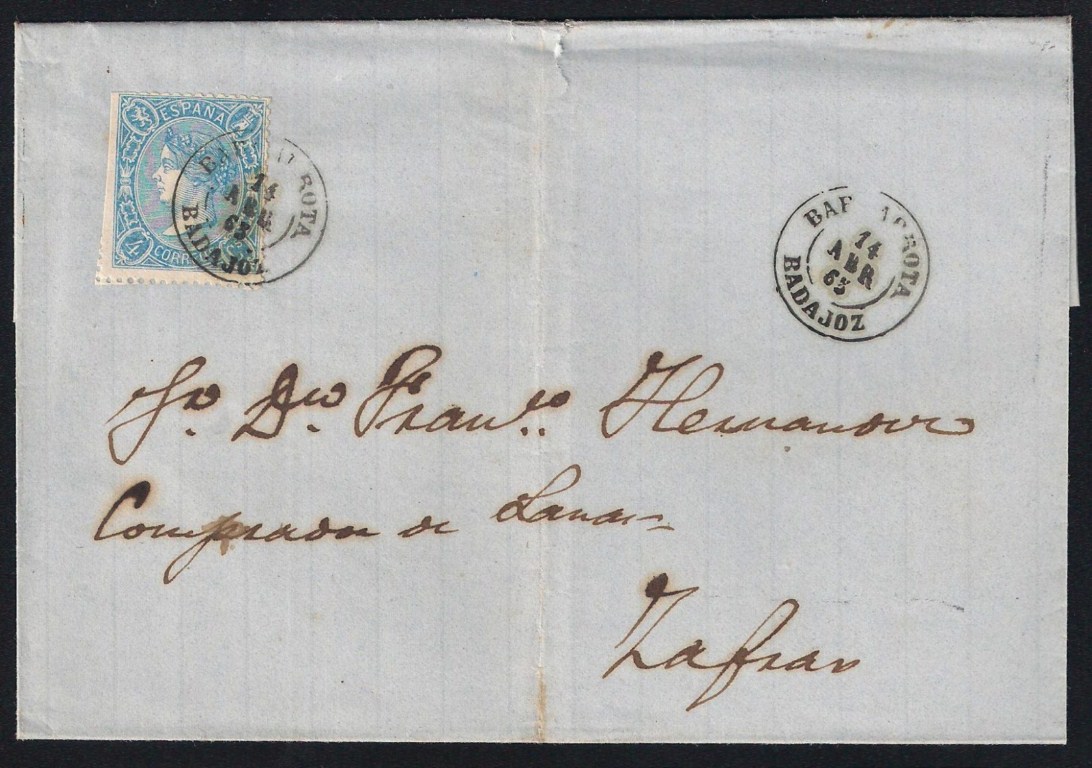 ESPAÑA
4
CORR
BA ROTA
14
ABR
65
BADAJOZ
BAR ROTA
14
ABR
65
BADAJOZ
Sr. Dn. Franco. Hernandez
Comprador de Lanas
Zafra